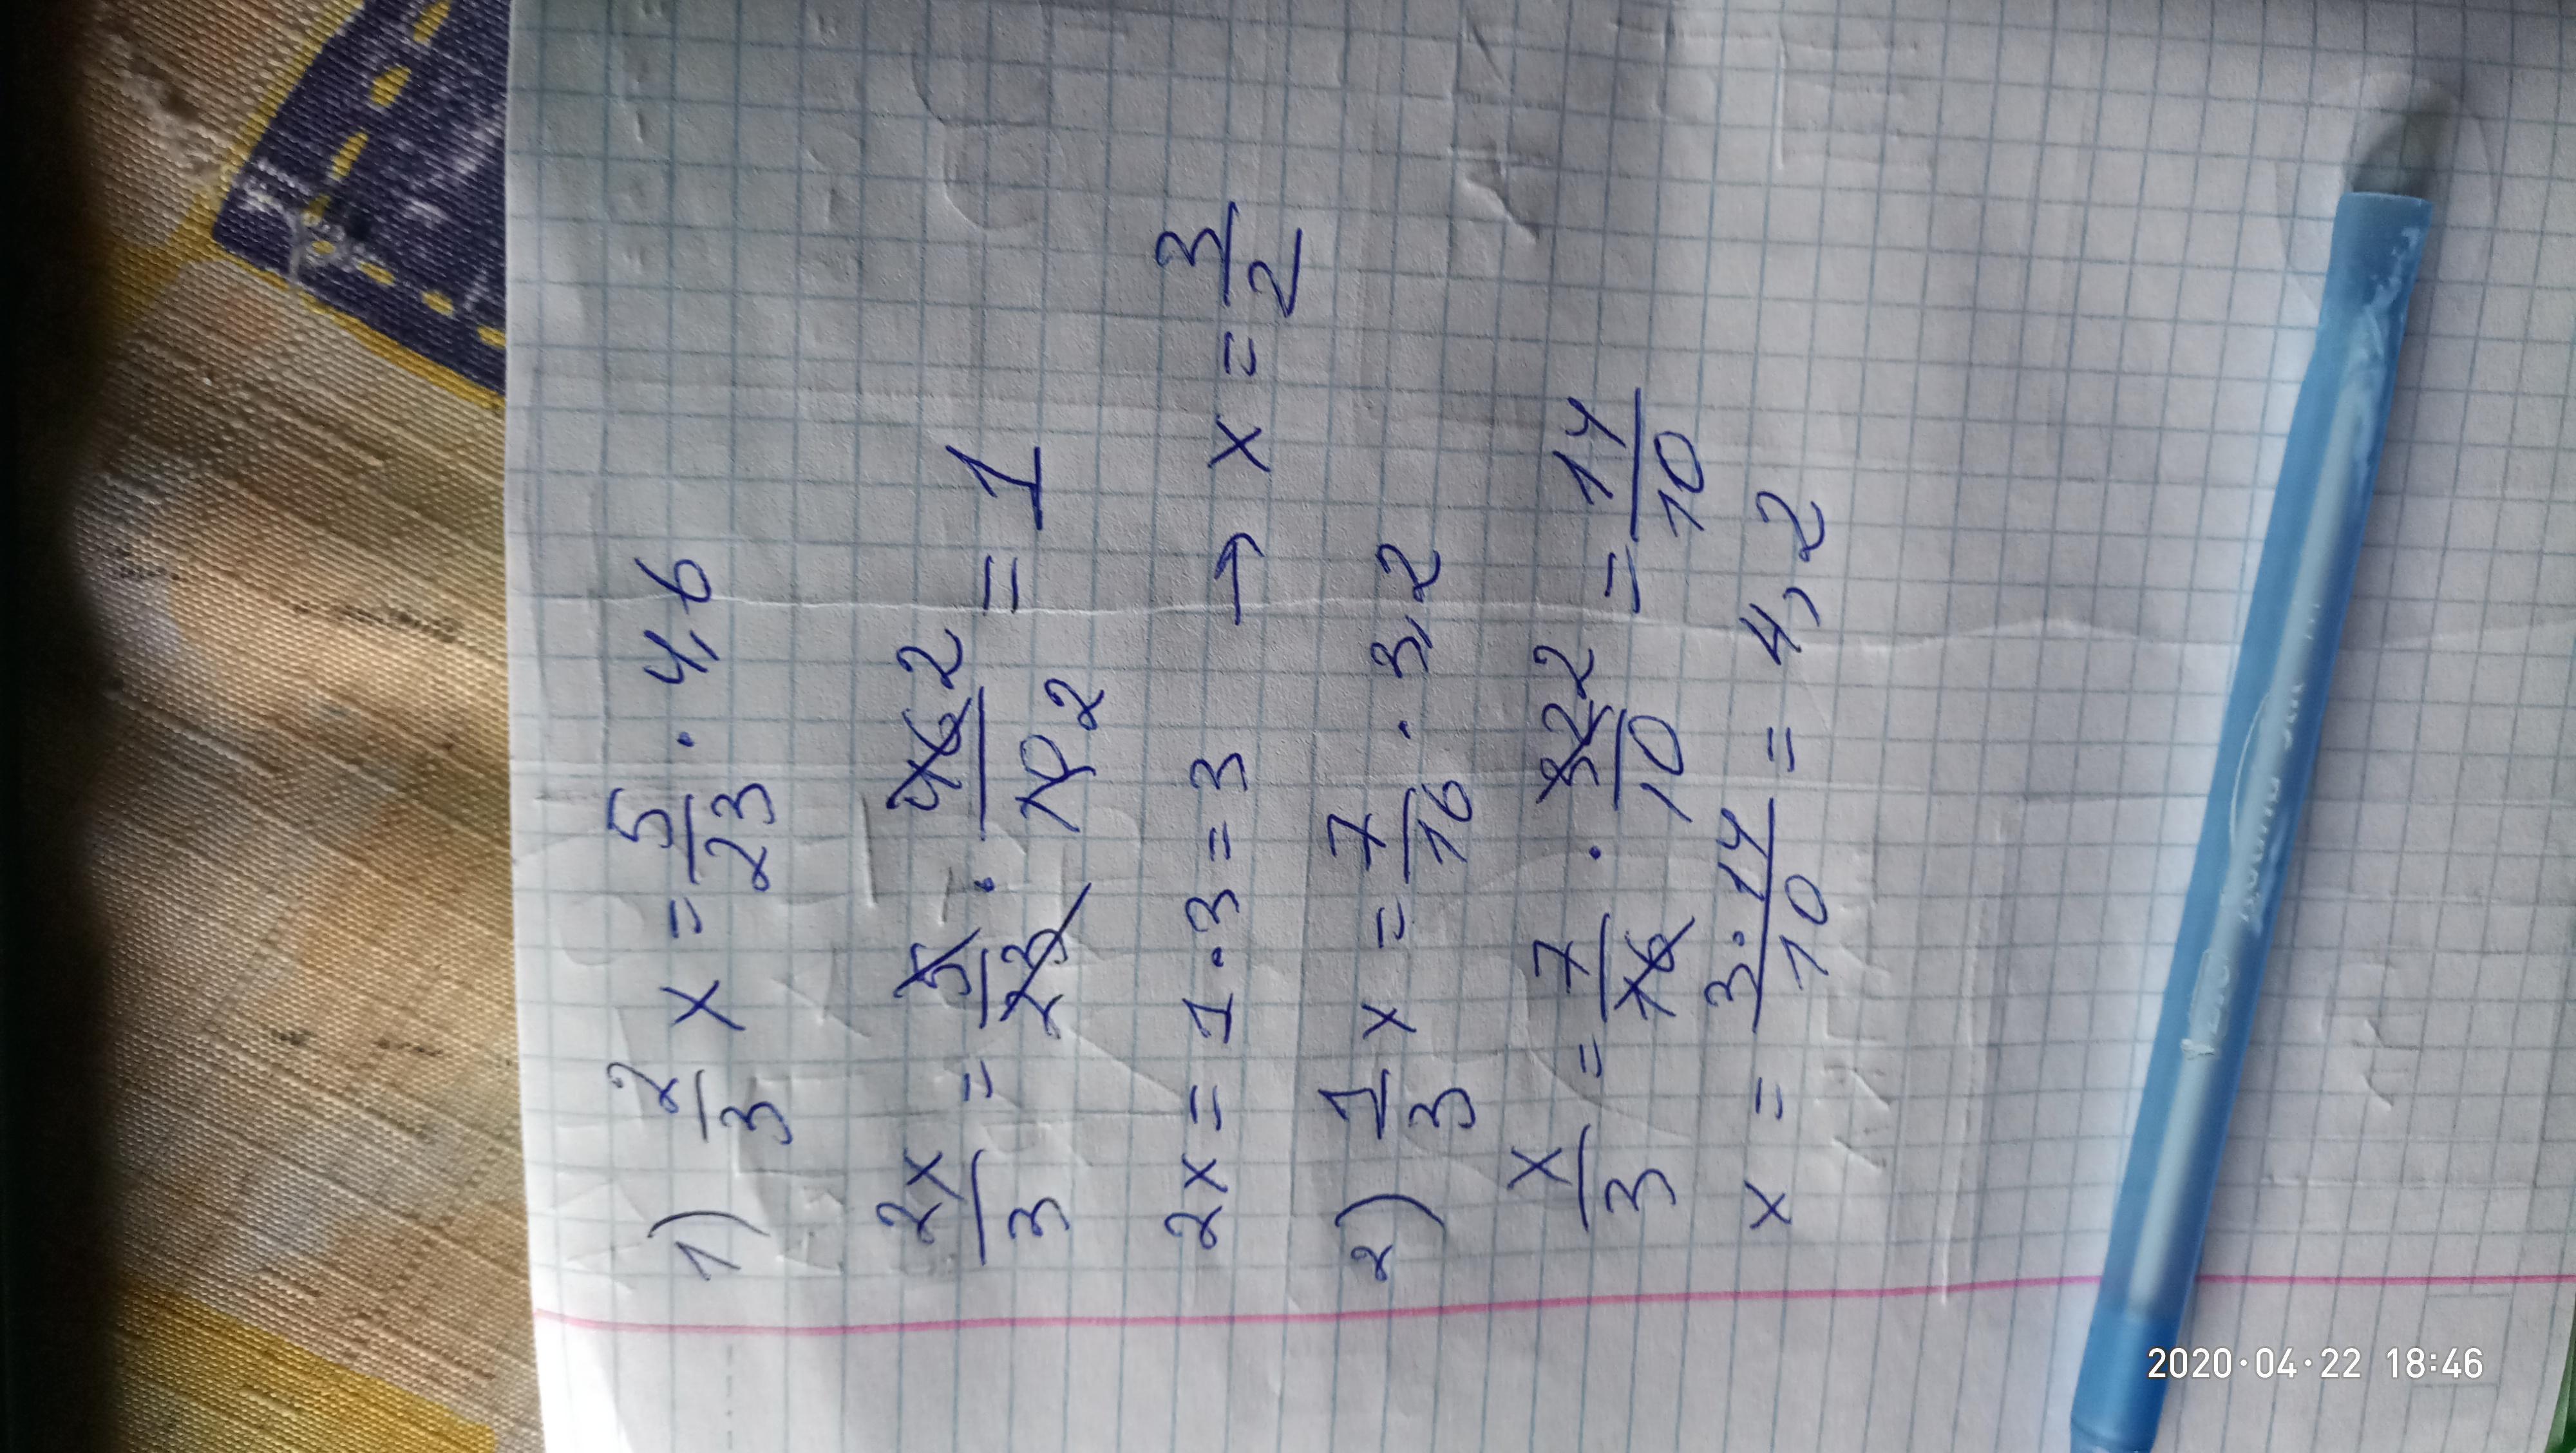 1) 2/3 x = 5/23 · 4,6
2x/3 = 5/23 · 46 2/10 2 = 1
2x = 1 · 3 = 3 → x = 3/2
2) 1/3 x = 7/16 · 3,2
x/3 = 7/16 · 32 2/10 = 14/10
x = 3·14/10 = 4,2
2020·04·22 18:46